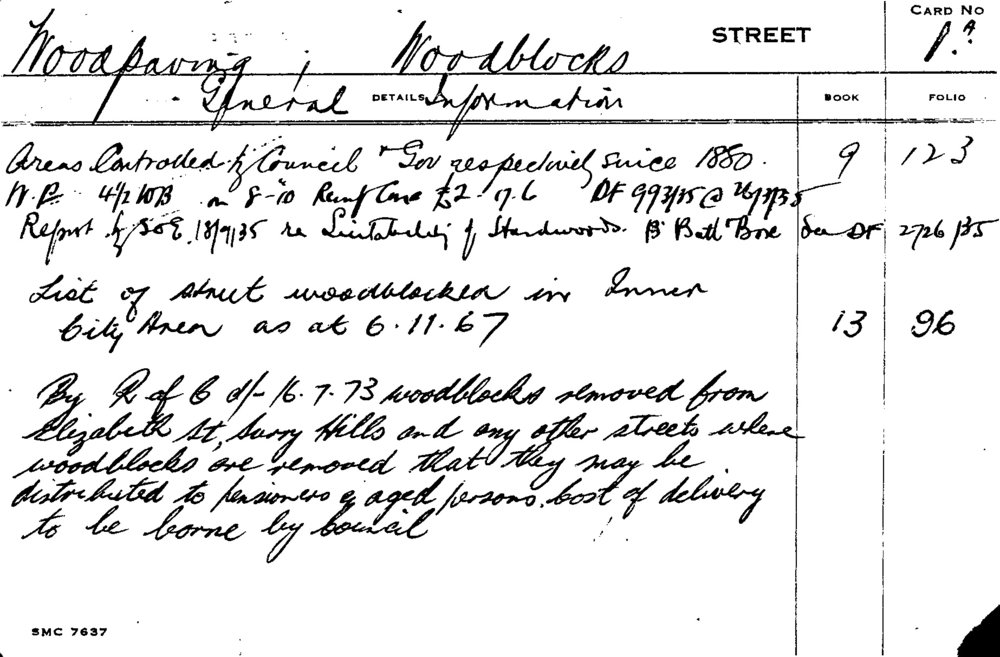 Woodpaving ; Woodblocks STREET CARD NO 1.A
General DETAILS Information BOOK FOLIO
Areas Controlled by Council & Gov respectively since 1880. 9 123
W.P. 4½ WB on 8-10 Reinf Conc £2.17.6 DF 993/35 @ 26/3/35
Report by S of E. 18/9/35 re Suitability of Hardwoods. B. Butt Box See DF 2726/35
List of street woodblocked in Inner
City Area as at 6.11.67 13 96
By R of C d/- 16.7.73 woodblocks removed from
Elizabeth St, Surry Hills and any other streets where
woodblocks are removed that they may be
distributed to pensioners & aged persons. Cost of delivery
to be borne by Council
SMC 7637